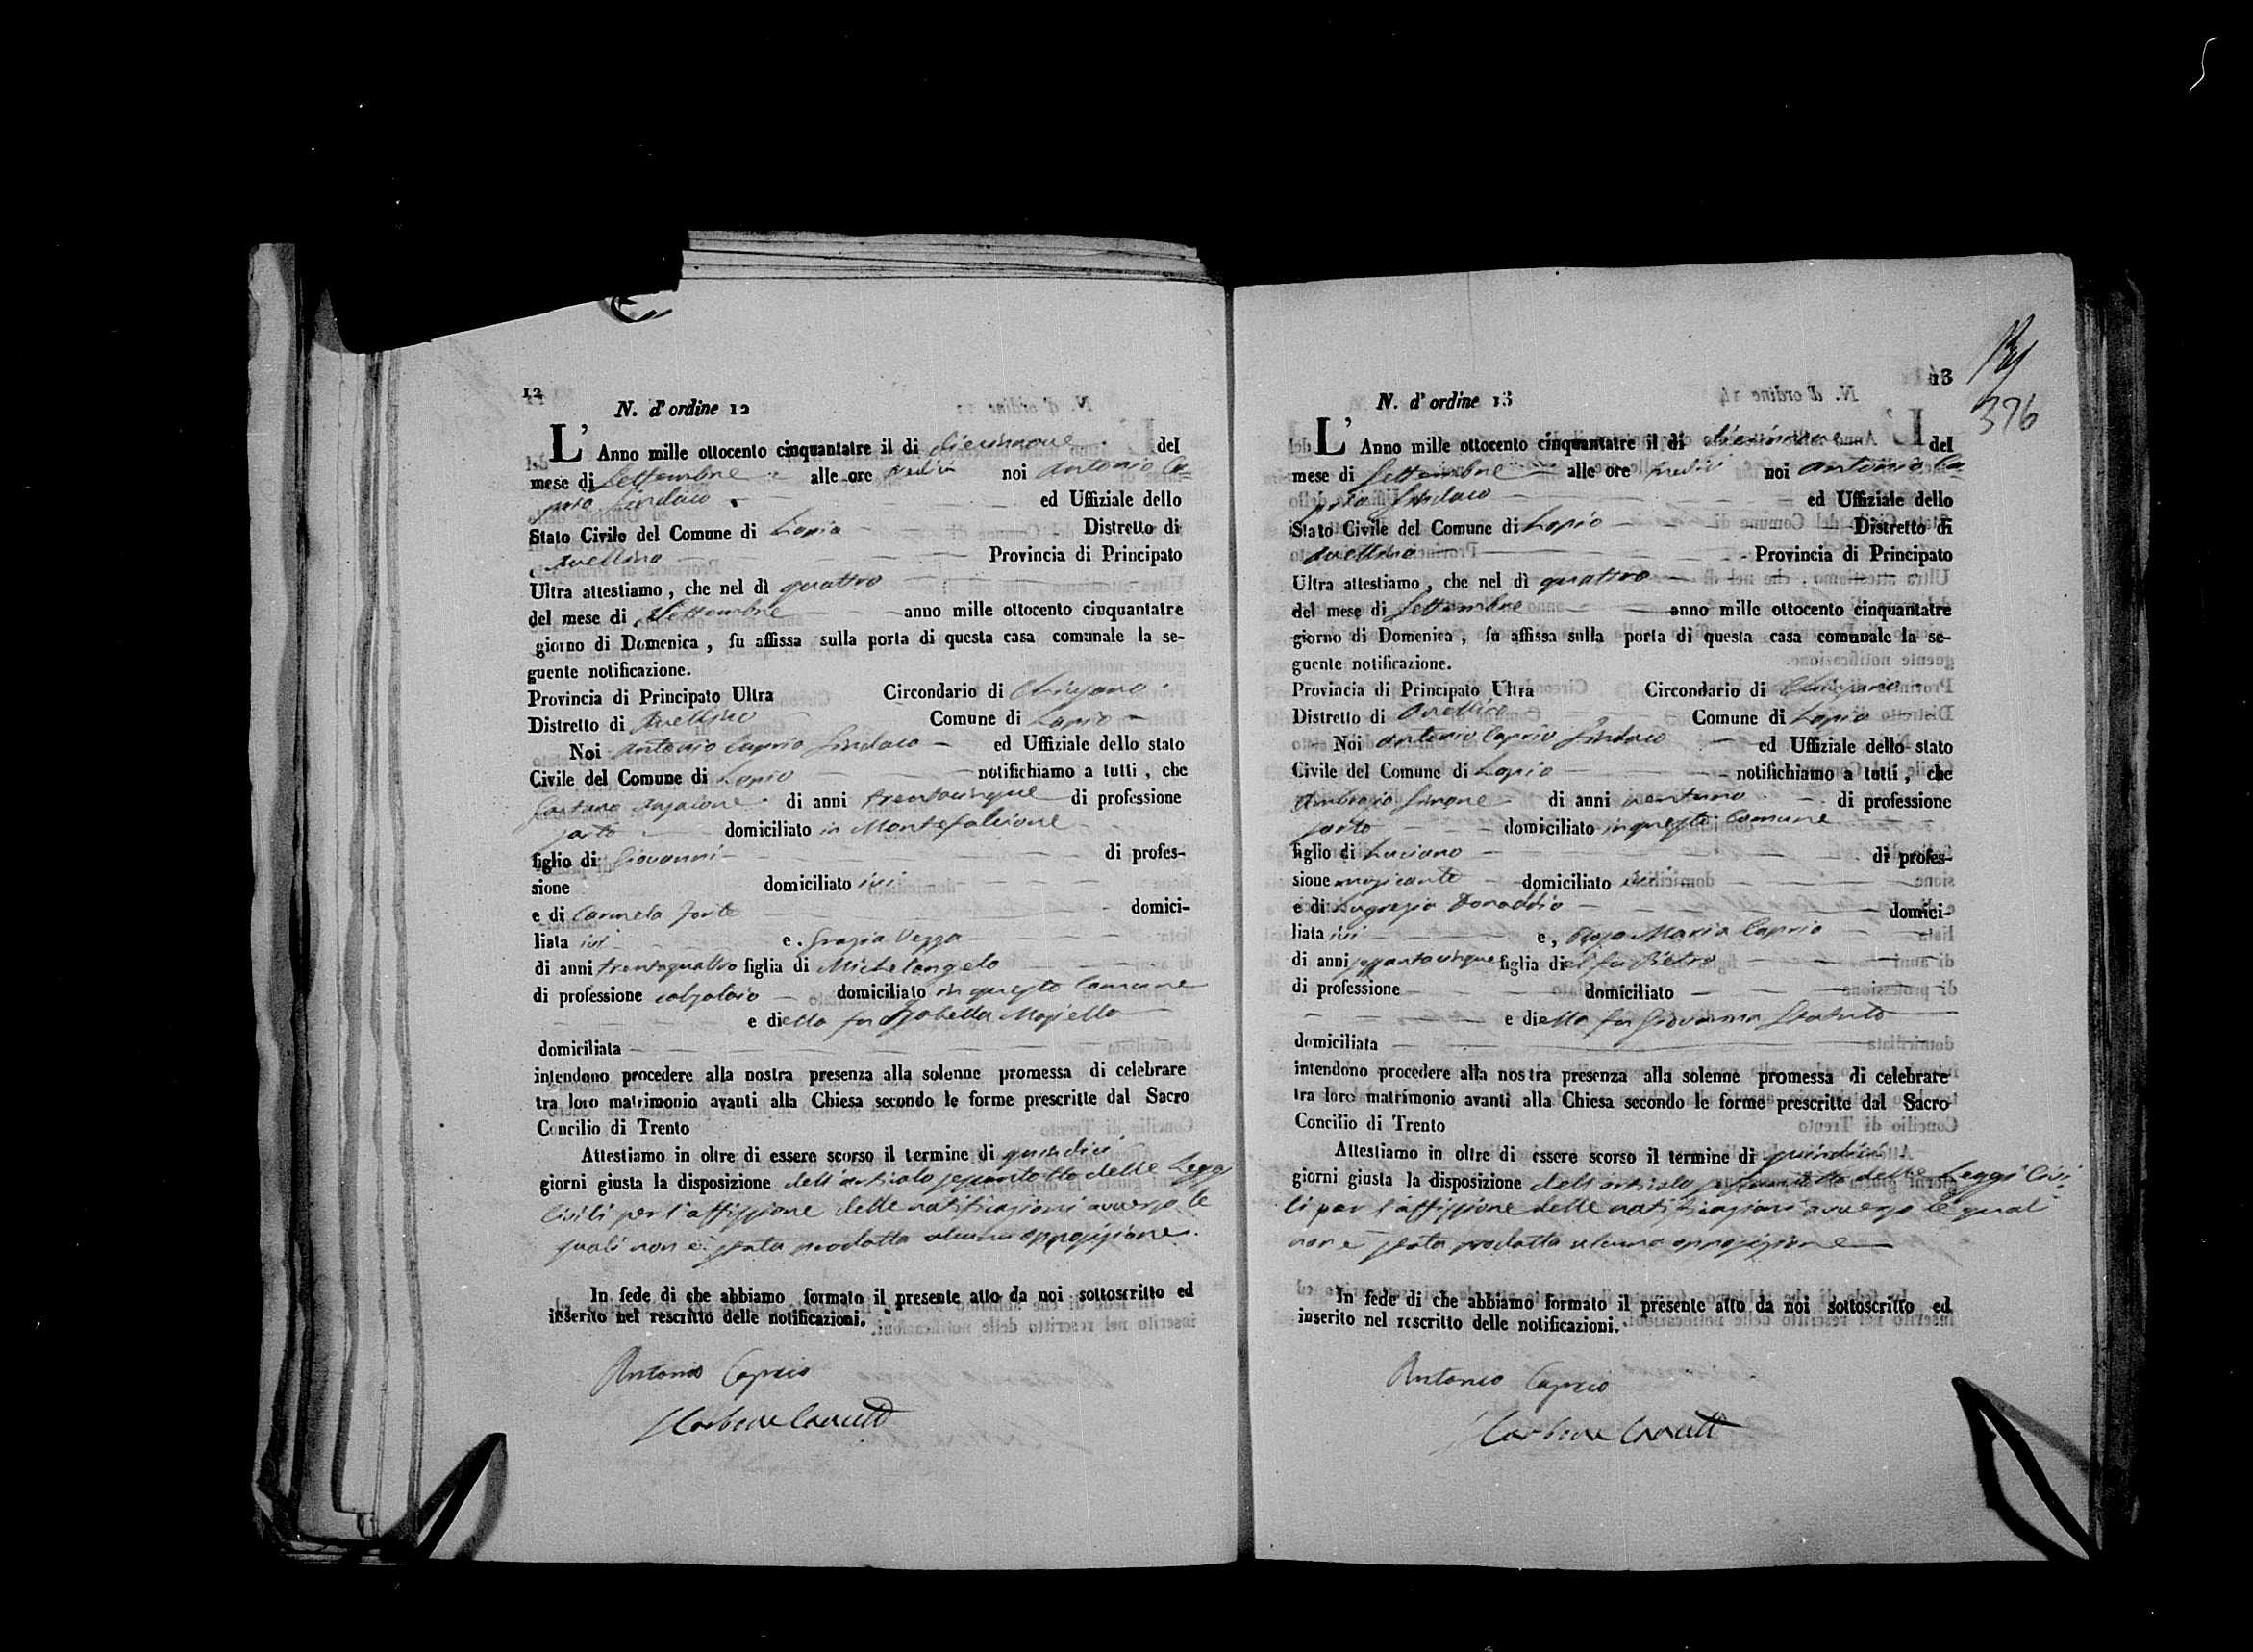 12
N. d'ordine 12
L' Anno mille ottocento cinquantatre il di diecinnove del
mese di Settembre alle ore sedici noi Antonio Ca=
prio Sindaco ed Uffiziale dello
Stato Civile del Comune di Lapio Distretto di
Avellino Provincia di Principato
Ultra attestiamo, che nel dì quattro
del mese di Settembre anno mille ottocento cinquantatre
giorno di Domenica, fu affissa sulla porta di questa casa comunale la se-
guente notificazione.
Provincia di Principato Ultra Circondario di Chiusano
Distretto di Avellino Comune di Lapio
Noi Antonio Caprio Sindaco ed Uffiziale dello stato
Civile del Comune di Lapio notifichiamo a tutti, che
Gaetano di anni trentacinque di professione
sarto domiciliato in Montefalcione
figlio di Giovanni di profes-
sione domiciliato ivi
e di Carmela Forte domici-
liata ivi e Grazia
di anni trentaquattro figlia di Michelangelo
di professione calzolaio domiciliato in questo Comune
e di ella fu Isabella
domiciliata
intendono procedere alla nostra presenza alla solenne promessa di celebrare
tra loro matrimonio avanti alla Chiesa secondo le forme prescritte dal Sacro
Concilio di Trento
Attestiamo in oltre di essere scorso il termine di quindici
giorni giusta la disposizione dell'articolo sessantotto delle Leggi
Civili per l'affissione delle notificazioni avverso le
quali non è stata prodotta alcuna opposizione.
In fede di che abbiamo formato il presente atto da noi sottoscritto ed
inserito nel rescritto delle notificazioni.
Antonio Caprio
13
376
N. d'ordine 13
L' Anno mille ottocento cinquantatre il di diecinnove del
mese di Settembre alle ore sedici noi Antonio Ca=
prio Sindaco ed Uffiziale dello
Stato Civile del Comune di Lapio Distretto di
Avellino Provincia di Principato
Ultra attestiamo, che nel dì quattro
del mese di Settembre anno mille ottocento cinquantatre
giorno di Domenica, fu affissa sulla porta di questa casa comunale la se-
guente notificazione.
Provincia di Principato Ultra Circondario di Chiusano
Distretto di Avellino Comune di Lapio
Noi Antonio Caprio Sindaco ed Uffiziale dello stato
Civile del Comune di Lapio notifichiamo a tutti, che
Ambrogio Simone di anni ventuno di professione
sarto domiciliato in questo Comune
figlio di Luciano di profes-
sione domiciliato ivi
e di Lugrezia Donaddio domici-
liata ivi e, Rosa Maria Caprio
di anni figlia di el fu Pietro
di professione domiciliato
e di ella fu Giovanna
domiciliata
intendono procedere alla nostra presenza alla solenne promessa di celebrare
tra loro matrimonio avanti alla Chiesa secondo le forme prescritte dal Sacro
Concilio di Trento
Attestiamo in oltre di essere scorso il termine di quindici
giorni giusta la disposizione dell'articolo sessantotto delle Leggi Civi-
li per l'affissione delle notificazioni avverso le quali
non è stata prodotta alcuna opposizione
In fede di che abbiamo formato il presente atto da noi sottoscritto ed
inserito nel rescritto delle notificazioni.
Antonio Caprio